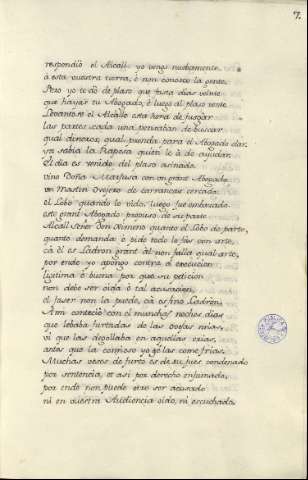 7.
respondió el Alcall yo vengo nuebamente
á esta vuestra tierra, é non conosco la gente.
Pero yo te dó de plaso que fasta dias veinte
que hayas tu Abogado, é luego al plaso vente.
Levantose el Alcalle esta hora de jusgar
las partes cada una pensaban de buscar
qual dineros, qual prenda para el Abogado dar,
ya sabia la Raposa quién le á de ayudar.
El dia es venido del plaso asinado
vino Doña Marfusa con un grant Abogado
un Mastin Ovejero de carrancas cercado
el Lobo quando lo vido, luego fue enbasado.
este grant Abogado propuso de su parte
Alcall Señor Don Ximeno quanto el Lobo departe,
quanto demanda ó pide todo lo fás con arte,
cá él es Ladron grant ál non falla qual arte,
por ende yo apongo contra él execucion
ligitima é buena por que su peticion
non debe ser oida ó tal acusacion,
el faser non la puede, cá es fino Ladrón,
A mi conteció con el muchas noches dias
que lebaba furtadas de las ovejas mias,
vi que las degollaba en aquellas erias,
antes que la comioso yo gé las comé frias,
Muchas veces de furto es de su jues condenado
por sentencia, et asi por derecho enfamado,
por ende non puede et so ser acusado
ni en nuestra Audiencia oido, ni escuchado.